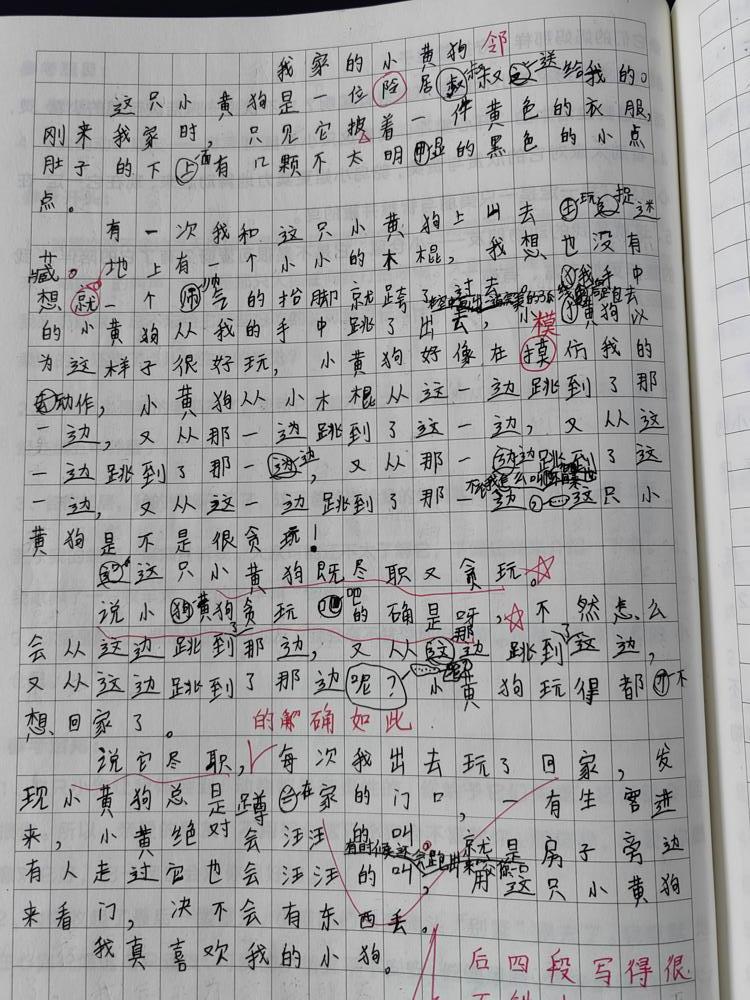 我家的小黄狗 邻
这只小黄狗是一位陷居叔叔送给我的。
刚来我家时，只见它披着一件黄色的衣服，
肚子的下面有几颗不太明显的黑色的小点
点。
有一次我和这只小黄狗出去玩捉迷
藏。地上有一个小小的木棍，我想也没有
想就一个帅气的抬脚就跨了过去，我手中
的小黄狗从我的手中跳了出去，小黄狗以
模
为这样子很好玩，小黄狗好像在摸仿我的
动作，小黄狗从小木棍从这一边跳到了那
一边，又从那一边跳到了这一边，又从这
一边跳到了那一边，又从那一边跳到了这
一边，又从这一边跳到了那一边这只小
黄狗是不是很贪玩！
这只小黄狗既尽职又贪玩。
说小黄狗贪玩吧的确是呀，不然怎么
会从这边跳到了那边，又从那边跳到了这边，
又从这边跳到了那边呢？小黄狗玩得都不
想回家了。 的确如此
说它尽职，每次我出去玩了回家，发
现小黄狗总是蹲在家的门口，一有生客进
来，小黄绝对会汪汪的叫。就是房子旁边
有人走过它也会汪汪的叫，用这只小黄狗
来看门，决不会有东西丢。
我真喜欢我的小狗。
后四段写得很